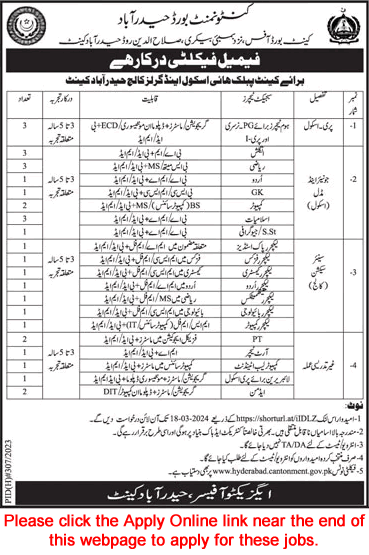 کنٹونمنٹ بورڈ حیدرآباد
کینٹ بورڈ آفس، نزد سٹی بیکری، صلاح الدین روڈ حیدرآباد کینٹ
فیمیل فیکلٹی درکار ہے
برائے کینٹ پبلک ہائی اسکول اینڈ گرلز کالج حیدرآباد کینٹ
نمبر شمار تفصیل سبجیکٹ ٹیچرز قابلیت درکار تجربہ تعداد
1- پری۔ اسکول ہوم ٹیچرز برائے PG، نرسری اور پری-I گریجویشن/ماسٹرز + ڈپلومہ ان مونٹیسوری/ECD + بی ایڈ/ایم ایڈ 3 تا 5 سالہ متعلقہ تجربہ 3
2- جونیئر اینڈ مڈل (اسکول) انگلش بی اے/ایم اے + بی ایڈ/ایم ایڈ 3 تا 5 سالہ متعلقہ تجربہ 3
ریاضی بی ایس میتھ/MS + بی ایڈ/ایم ایڈ 3
اُردو بی اے/ایم اے + بی ایڈ/ایم ایڈ 1
GK بی ایس سی/ایم ایس سی + بی ایڈ/ایم ایڈ 1
کمپیوٹر BS (کمپیوٹر سائنس)/MS + بی ایڈ/ایم ایڈ 2
اسلامیات بی اے/ایم اے + بی ایڈ/ایم ایڈ 3
S.St/جیوگرافی بی اے/ایم اے + بی ایڈ/ایم ایڈ 1
3- سینئر سیکشن (کالج) لیکچرر پاک اسٹڈیز متعلقہ مضمون میں ایم اے/ایم فل + بی ایڈ/ایم ایڈ 3 تا 5 سالہ متعلقہ تجربہ 1
لیکچرر فزکس فزکس میں ایم ایس سی/ایم فل + بی ایڈ/ایم ایڈ 1
لیکچرر کیمسٹری کیمسٹری میں ایم ایس سی/ایم فل + بی ایڈ/ایم ایڈ 1
لیکچرر اُردو اُردو میں ایم اے/ایم فل + بی ایڈ/ایم ایڈ 1
لیکچرر میتھمیٹکس ریاضی میں MS/ایم فل + بی ایڈ/ایم ایڈ 1
لیکچرر بائیولوجی بائیولوجی میں ایم ایس سی/ایم فل + بی ایڈ/ایم ایڈ 1
لیکچرر کمپیوٹر ایم ایس/ایم فل (کمپیوٹر سائنس/IT) + بی ایڈ/ایم ایڈ 1
4- غیر تدریسی عملہ PT فزیکل ایجوکیشن میں ماسٹرز + بی ایڈ/ایم ایڈ 3 تا 5 سالہ متعلقہ تجربہ 2
آرٹ ٹیچر ایم اے + بی ایڈ/ایم ایڈ 1
کمپیوٹر لیب اٹینڈنٹ کمپیوٹر سائنس میں ماسٹرز + بی ایڈ/ایم ایڈ 1
لائبریرین برائے پری اسکول گریجویشن/ماسٹرز + مونٹیسوری ڈپلومہ + بی ایڈ/ایم ایڈ 1
ایڈمن گریجویشن/کمپیوٹر ڈپلومہ/DIT 2
نوٹ:
1- امیدوار اس لنک https://shorturl.at/iIDLZ کے ذریعے 18-03-2024 تک آن لائن درخواست دیں گے۔
2- مندرجہ بالا اسامیاں ناقابل منتقلی ہیں۔ بھرتی خالصتاً کنٹریکٹ/ایڈہاک بنیاد پر ہوگی اور اسی طرح برقرار رہے گی۔
3- انٹرویو/ٹیسٹ کے لئے TA/DA نہیں دیا جائے گا۔
4- صرف منتخب کردہ امیدواروں کو انٹرویو/ٹیسٹ کے لئے طلب کیا جائے گا۔
5- ویکینسی نوٹس www.hyderabad.cantonment.gov.pk پر بھی دستیاب ہے۔
ایگزیکٹو آفیسر، حیدرآباد کینٹ
PID(H)#307/2023
Please click the Apply Online link near the end of
this webpage to apply for these jobs.